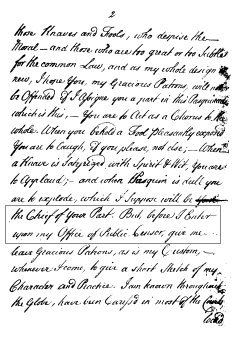 2
those Knaves and Fools, who despise the
Moral – and those who are too great or too Subtle
for the common Law, and as my whole design is
new, I hope You, my Gracious Patrons, will not
be Offended if I assigne you a part in this Pasquinade
which is this, – You are to Act as a Chorus to the
whole. When you behold a Fool pleasantly exposed
You are to Laugh, if you please, not else; – When
a Knave is Satyrized with Spirit & Wit, You are
to Applaud; – and when Pasquin is dull you
are to explode, which I suppose will be
the Chief of Your Part. But, before I Enter
upon my Office of Public Censor, give me
leave Gracious Patrons, as is my Custom, –
whenever I come, to give a short Sketch of my
Character and Practice. I am known throughout
the Globe, have been Caress'd in most of the
Courts